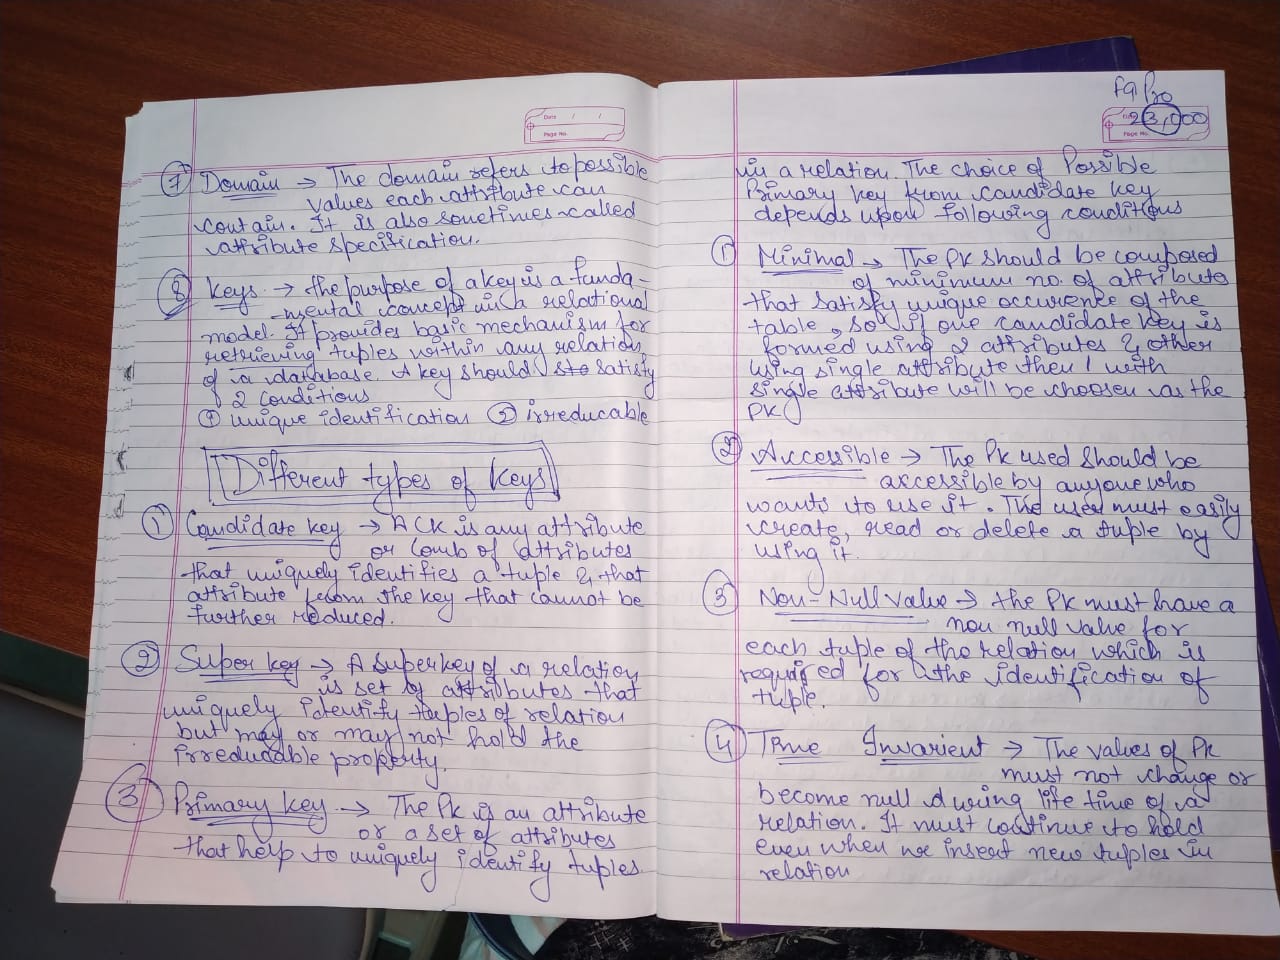 Date / /
Page No.
⑦ Domain → The domain refers to possible
values each attribute can
contain. It is also sometimes called
attribute specification.
⑧ Keys → the purpose of a key is a funda-
-mental concept in a relational
model. It provides basic mechanism for
retrieving tuples within any relation
of a database. A key should satisfy
of 2 conditions
① unique identification ② irreducable
Different types of Keys
① Candidate key → A CK is any attribute
or comb of attributes
that uniquely identifies a tuple & that
attribute from the key that cannot be
further reduced.
② Super key → A super key of a relation
is set of attributes that
uniquely identify tuples of relation
but may or may not hold the
irreducable property.
③ Primary key → The PK is an attribute
or a set of attributes
that help to uniquely identify tuples
Pro
23,000
Page No.
in a relation. The choice of Possible
Primary key from candidate key
depends upon following conditions
① Minimal → The PK should be composed
of minimum no. of attribute
that satisfy unique occurence of the
table, so if one candidate key is
formed using 2 attributes & other
using single attribute then 1 with
single attribute will be choosen as the
PK
② Accessible → The PK used should be
accessible by anyone who
wants to use it. The user must easily
create, read or delete a tuple by
using it.
③ Non-Null value → the PK must have a
non null value for
each tuple of the relation which is
required for the identification of
tuple.
④ Time Invarient → The values of PK
must not change or
become null during life time of a
relation. It must continue to hold
even when we insert new tuples in
relation